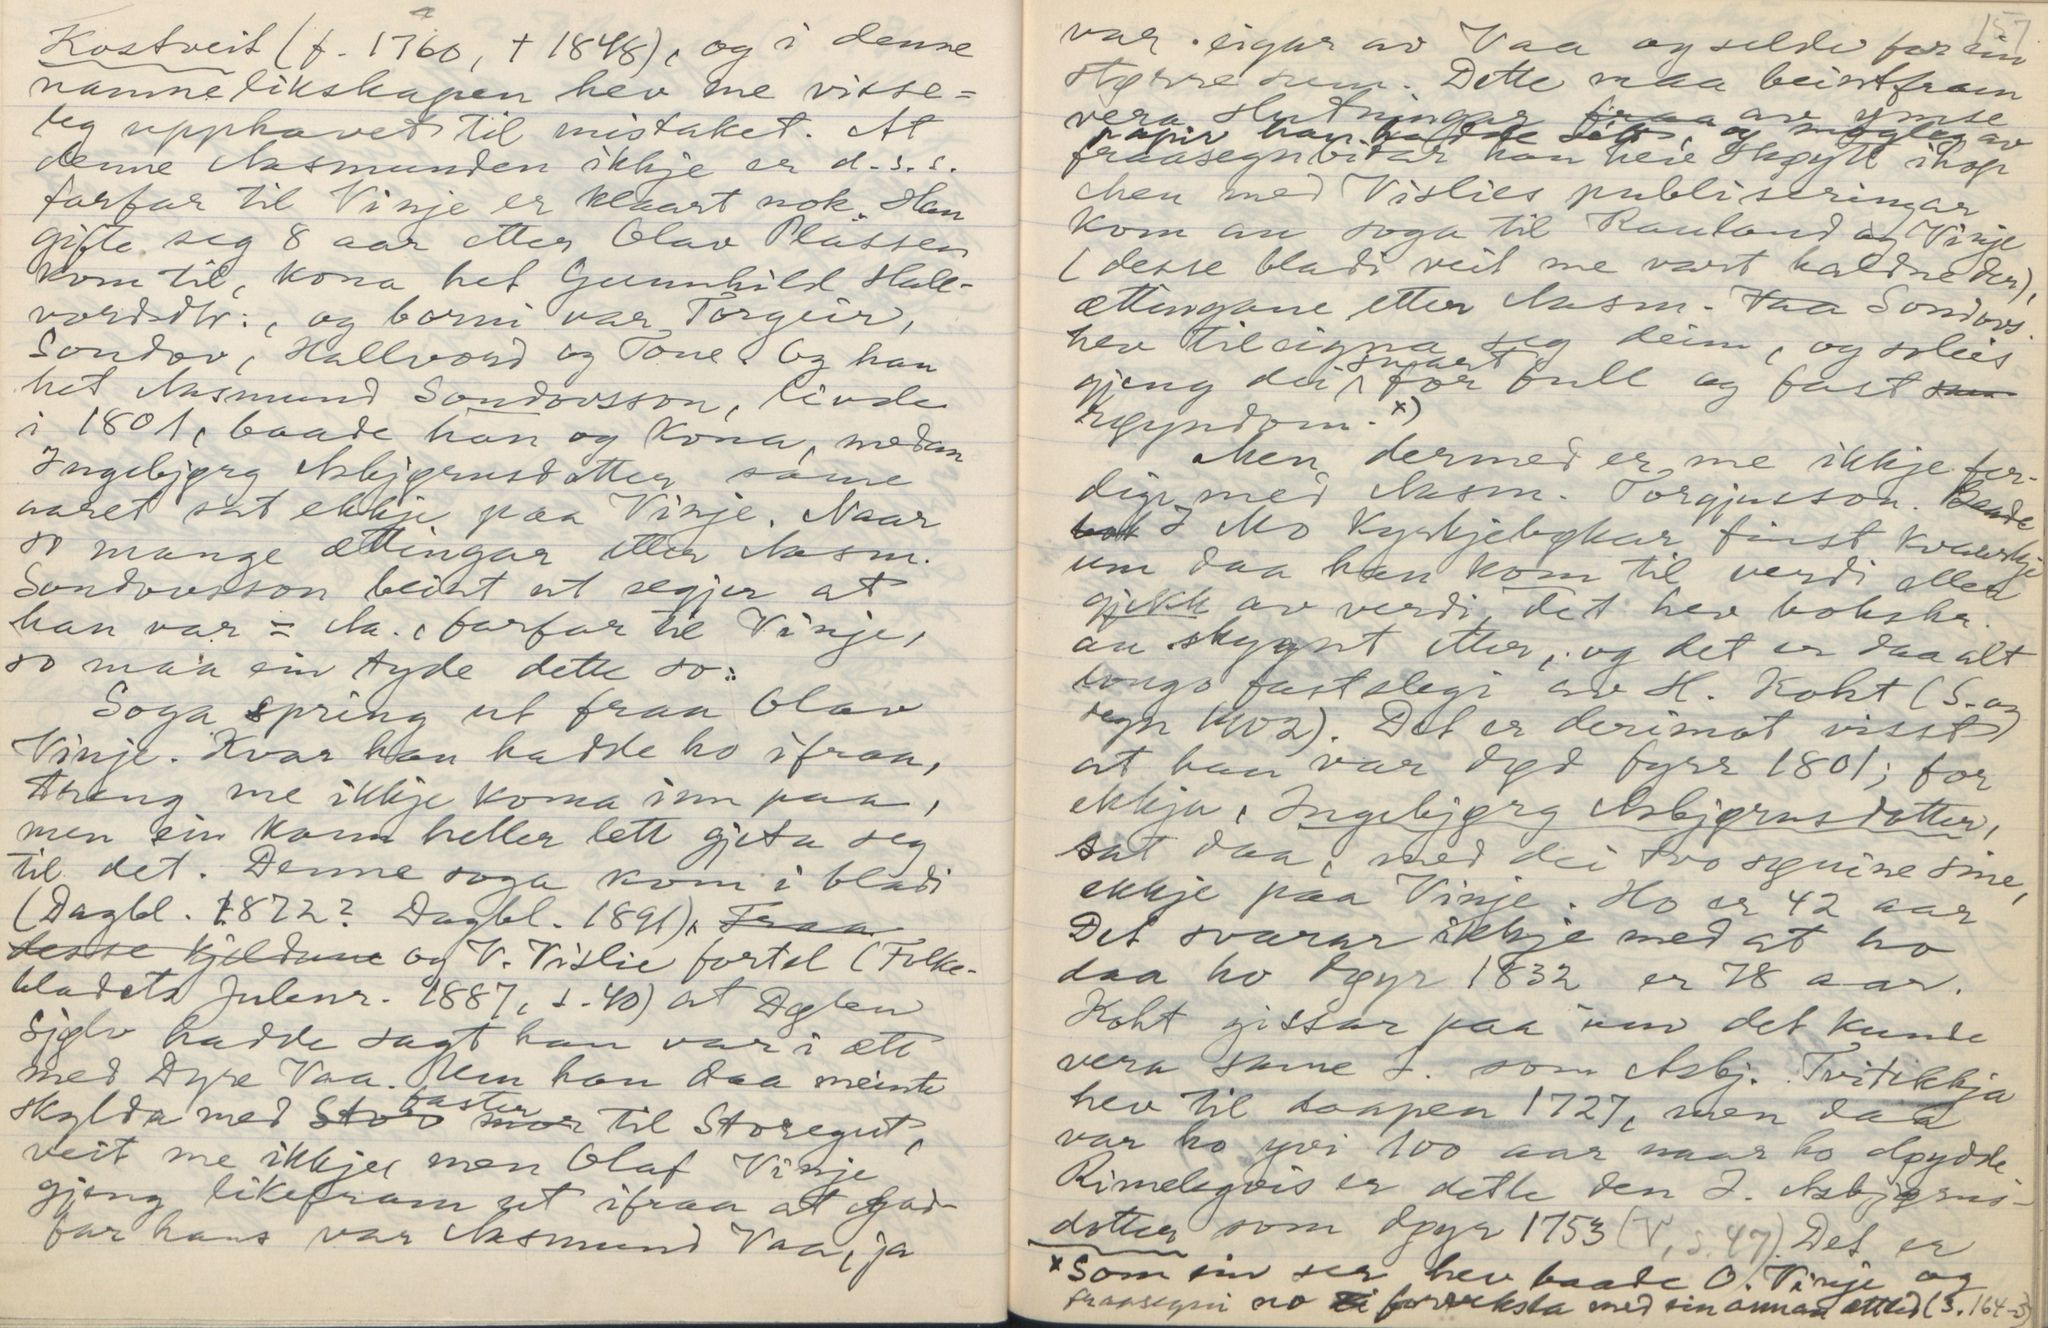 Kostveit (f. 1760, † 1848), og i denne
namnelikskapen hev me visse=
leg upphavet til mistaket. At
denne Aasmunden ikkje er d.s.s.
farfar til Vinje er klaart nok. Han
gifte seg 8 aar etter Olav Plassen
kom til, kona het Gunnhild Hall-
vordsdtr., og borni var Torgeir,
Sondov, Hallvord og Tone. Og han
het Aasmund Sondovsson, livde
i 1801, baade han og kona, medan
Ingebjørg Asbjørnsdotter same
aaret sat ekkje paa Vinje. Naar
so mange ættingar etter Aasm.
Sondovsson beint ut segjer at
han var = Aa., farfar til Vinje,
so maa ein tyde dette so:
Soga spring ut fraa Olav
Vinje. Kvar han hadde ho ifraa,
treng me ikkje koma inn paa,
men ein kann heller lett gjeta seg
til det. Denne soga kom i bladi
(Dagbl. 1872? Dagbl. 1891), Fraa
desse kjeldune og V. Vislie fortel (Folke-
bladets Julenr. 1887, s. 40) at Dølen
sjølv hadde sagt han var i ætt
med Dyre Vaa. Um han daa meinte
skylda med Stov faster mor til Storegut,
veit me ikkje, men Olaf Vinje
gjeng likefram ut ifraa at god-
far hans var Aasmund Vaa, ja
157
var eigar av Vaa og selde for ein
større sum. Dette maa beintfram
vera slutningar fraa av ymse
papir han hadde set, og mogleg av
fraasegnbitar han heve skøytt ihop
Men med Vislies publiseringar
kom au soga til Rauland og Vinje
(desse bladi veit me vart haldne der),
ættingane etter Aasm. Vaa Sondovs.
hev tileigna seg deim, og soleis
gjeng dei snart for full og fast sam
røyndom. x)
Men dermed er me ikkje fer-
dige med Aasm. Torgjusson. Baade
bok I Mo kyrkjebøkar finst kvarkje
um daa han kom til verdi eller
gjekk av verdi, det hev bokskr.
au skygnt etter, og det er daa alt
longo fastslegi av H. Koht (S. og
segn 1902). Det er derimot visst
at han var død fyrr 1801; for
ekkja, Ingebjørg Asbjørnsdotter,
sat daa, med dei tvo sønine sine,
ekkje paa Vinje. Ho er 42 aar
Det svarar ikkje med at ho
daa ho døyr 1832 er 78 aar.
Koht gissar paa um det kunde
vera same I. som Asbj. Tvitekkja
hev til daapen 1727, men daa
var ho yvi 100 aar naar ho døydde
Rimelegvis er dette den I. Asbjørns-
dotter som døyr 1753 (V, s. 47). Det er
x Som ein ser hev baade O. Vinje og
fraasegni no forveksla med ein annan ættled (s. 164-5)